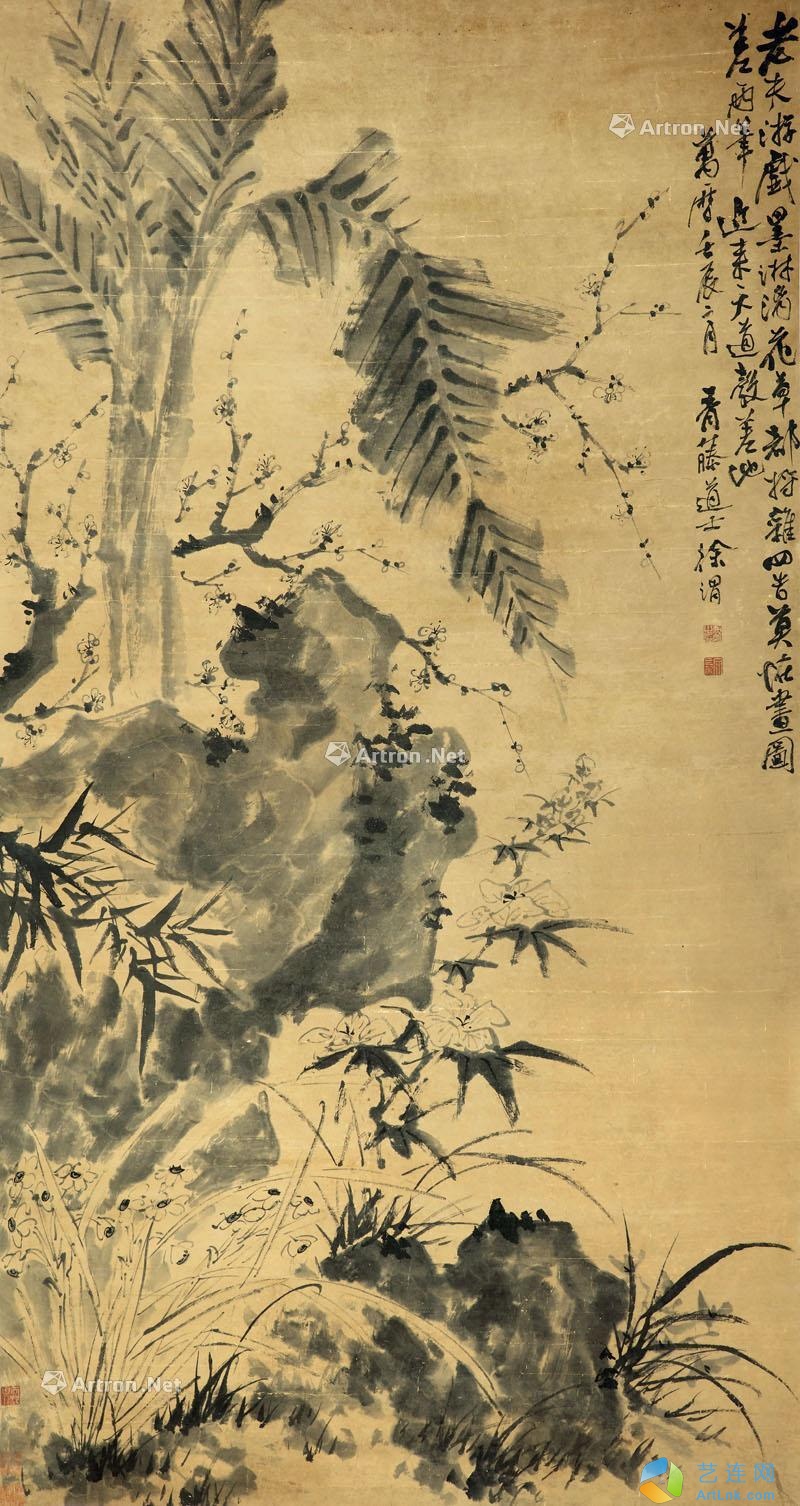 老夫游戲墨淋漓花草都將雜四旹莫恠畫圖
差兩筆近來天道彀差池
萬曆壬辰二月 青藤道士徐渭
Artron.Net
Artron.Net
Artron.Net
艺连网
ArtLnk.com